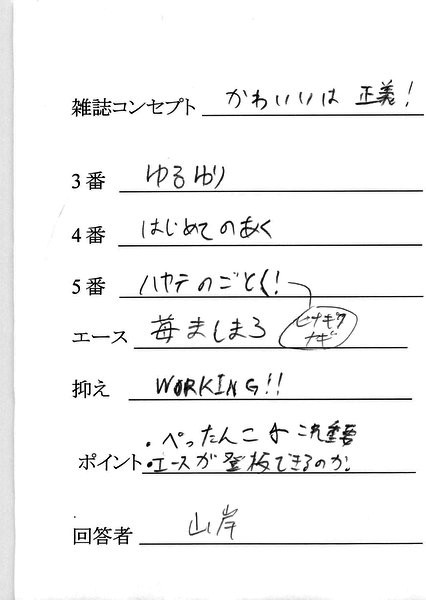 雑誌コンセプト かわいいは 正義!
3番 ゆるゆり
4番 はじめてのあく
5番 ハヤテのごとく!
エース 苺ましまろ ヒナギク
ナギ
抑え WORKING!!
・ぺったんこ 重要
ポイント ・エースが登板できるのか。
回答者 山岸